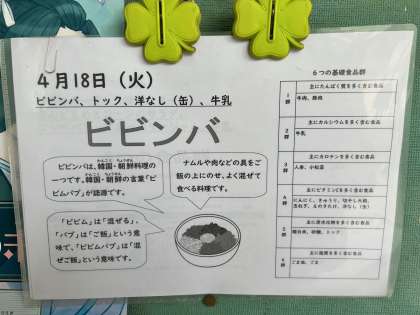 4月18日（火）
ビビンバ、トック、洋なし（缶）、牛乳
ビビンバ
ビビンバは、韓国・朝鮮料理の
かんこく ちょうせん
一つです。韓国・朝鮮の言葉「ビビ
かんこく ちょうせん
ムバプ」が語源です。
ナムルや肉などの具をご
飯の上にのせ、よく混ぜて
食べる料理です。
「ビビム」は「混ぜる」、
「バプ」は「ご飯」という意
味で、「ビビムバプ」は「混
ぜご飯」という意味です。
6つの基礎食品群
1群
主にたんぱく質を多く含む食品
牛肉、豚肉
2群
主にカルシウムを多く含む食品
牛乳
3群
主にカロテンを多く含む食品
人参、小松菜
4群
主にビタミンCを多く含む食品
にんにく、きゅうり、切干し大根、
洋なし（缶）
5群
主に炭水化物を多く含む食品
精白米、砂糖、トック
6群
主に脂質を多く含む食品
ごま油、ごま